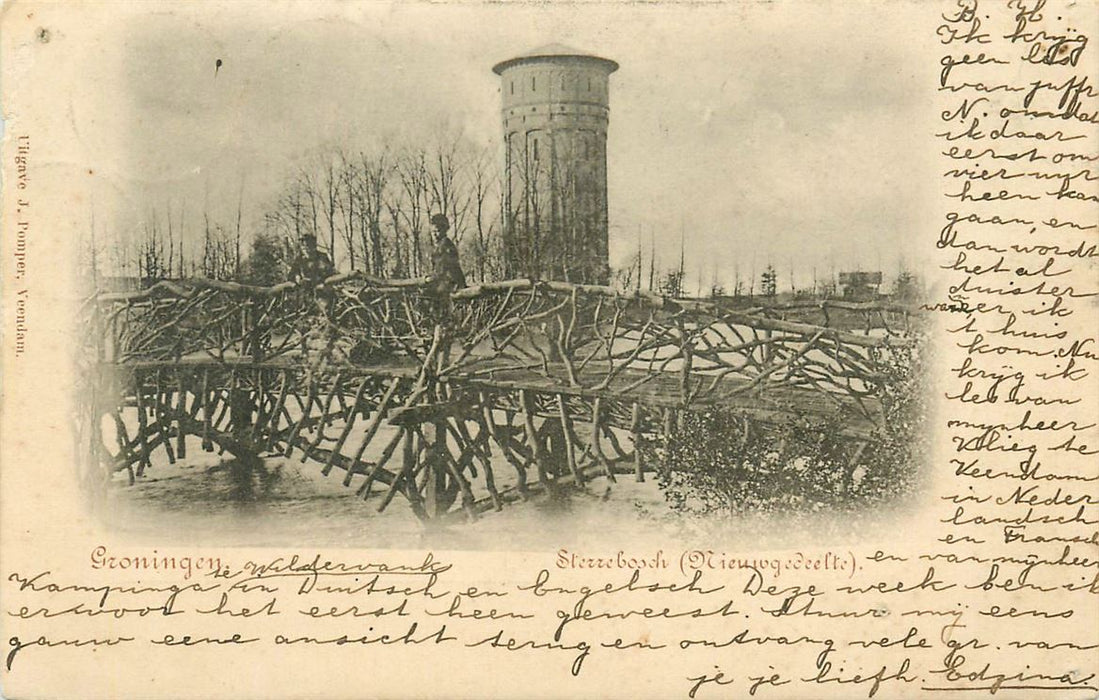 Uitgave J. Pomper, Veendam.
B. H.
Ik krijg
geen les
van juffr
N. omdat
ik daar
eerst om
vier uur
heen kan
gaan, en
dan wordt
het al
duister
wanneer ik
t huis
kom. Nu
krijg ik
les van
mijnheer
Vlieg te
Veendam
in Neder
landsch
en Fransch
en van mijnheer
Groningen.
Sterrebosch (Nieuwgedeelte).
Kampinga te Wildervank in Duitsch en Engelsch Deze week ben ik
ervoor het eerst heen geweest. Stuur mij eens
gauw eene ansicht terug en ontvang vele gr. van
je je liefh. Edzina.